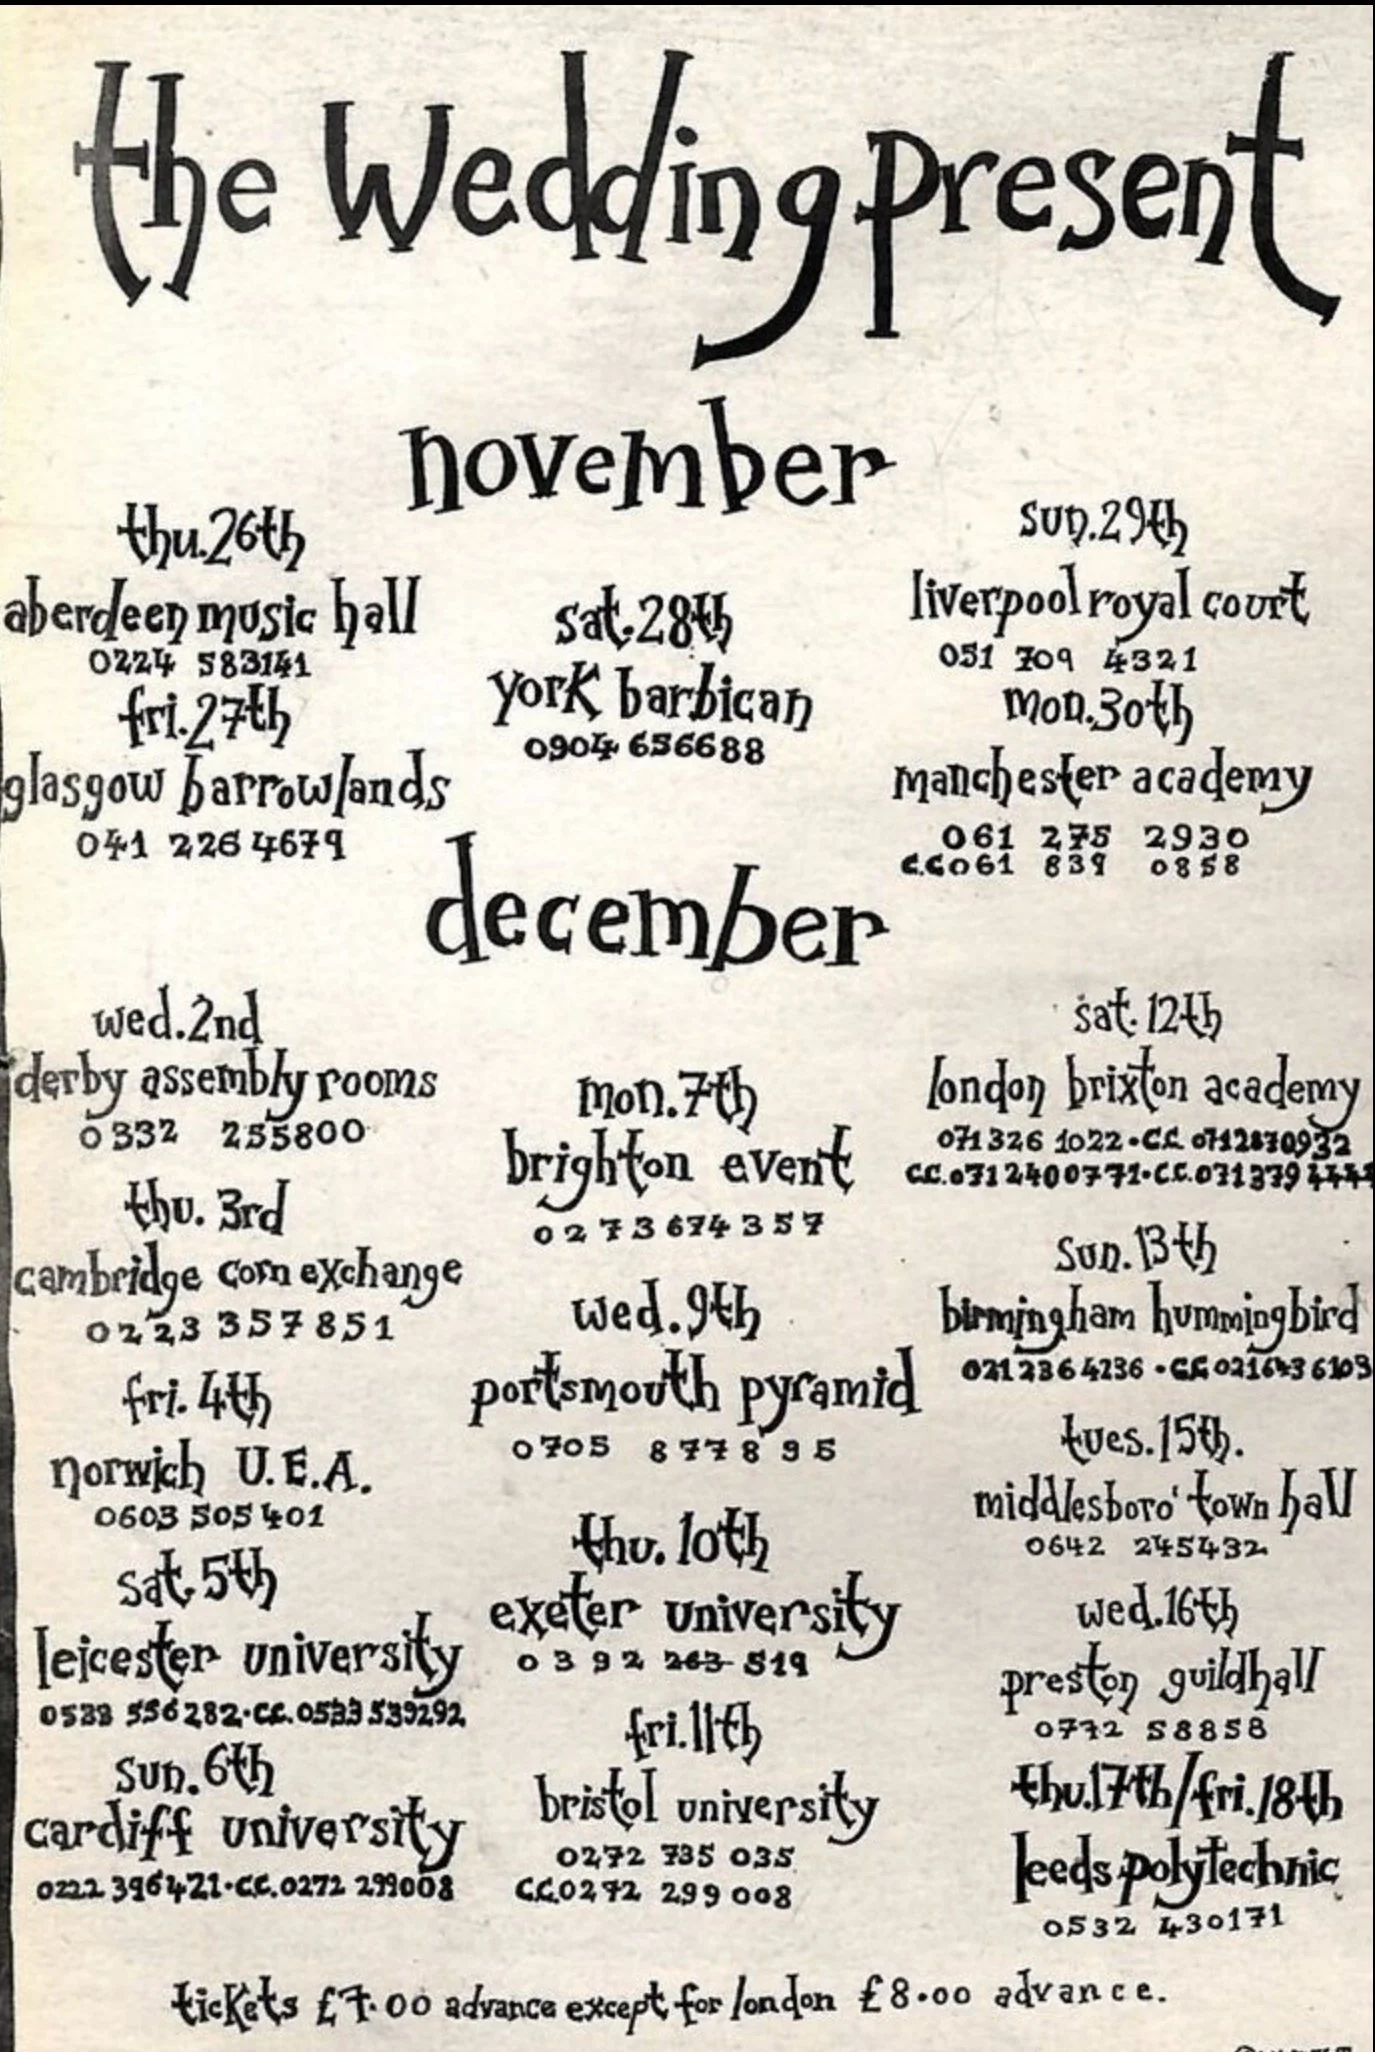 the Wedding present
november
thu.26th
aberdeen music hall
0224 583141
fri.27th
glasgow barrowlands
041 226 4679
sat.28th
york barbican
0904 656688
sun.29th
liverpool royal court
051 709 4321
mon.30th
manchester academy
061 275 2930
C.C061 839 0858
december
wed.2nd
derby assembly rooms
0332 255800
thu. 3rd
cambridge corn exchange
0223 357851
fri. 4th
norwich U.E.A.
0603 505401
sat.5th
leicester university
0533 556282·CC.0533 539292
sun.6th
cardiff university
0222 396421·C.C.0272 299008
mon.7th
brighton event
0273 674357
wed.9th
portsmouth pyramid
0705 877895
thu. 10th
exeter university
0392 263 519
fri.11th
bristol university
0272 735 035
C.C.0272 299 008
sat.12th
london brixton academy
071 326 1022·C.C. 0712870932
C.C.071 2400771·C.C.071 379 4444
sun.13th
birmingham hummingbird
021 236 4236 ·CC 021643 6103
tues.15th.
middlesboro' town hall
0642 245432
wed.16th
preston guildhall
0772 58858
thu.17th/fri.18th
leeds polytechnic
0532 430171
tickets £7.00 advance except for london £8.00 advance.